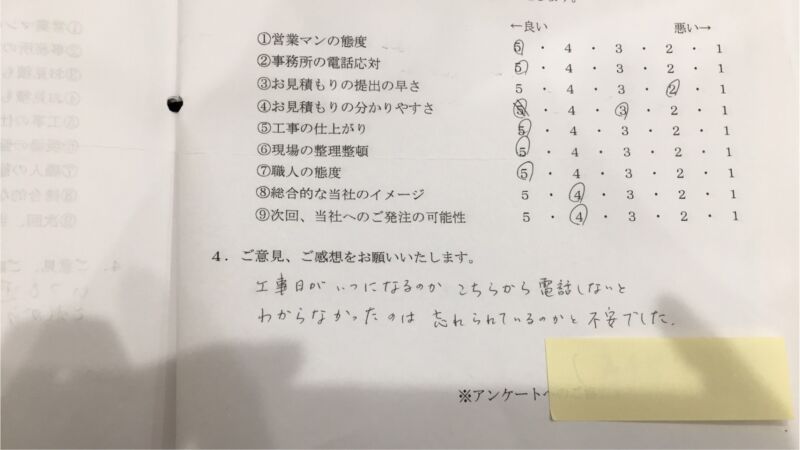 ←良い 悪い→
①営業マンの態度 5・4・3・2・1
②事務所の電話応対 5・4・3・2・1
③お見積もりの提出の早さ 5・4・3・2・1
④お見積もりの分かりやすさ 5・4・3・2・1
⑤工事の仕上がり 5・4・3・2・1
⑥現場の整理整頓 5・4・3・2・1
⑦職人の態度 5・4・3・2・1
⑧総合的な当社のイメージ 5・4・3・2・1
⑨次回、当社へのご発注の可能性 5・4・3・2・1
4．ご意見、ご感想をお願いいたします。
工事日がいつになるのか こちらから電話しないと
わからなかったのは 忘れられているのかと不安でした。
※アンケートへのご